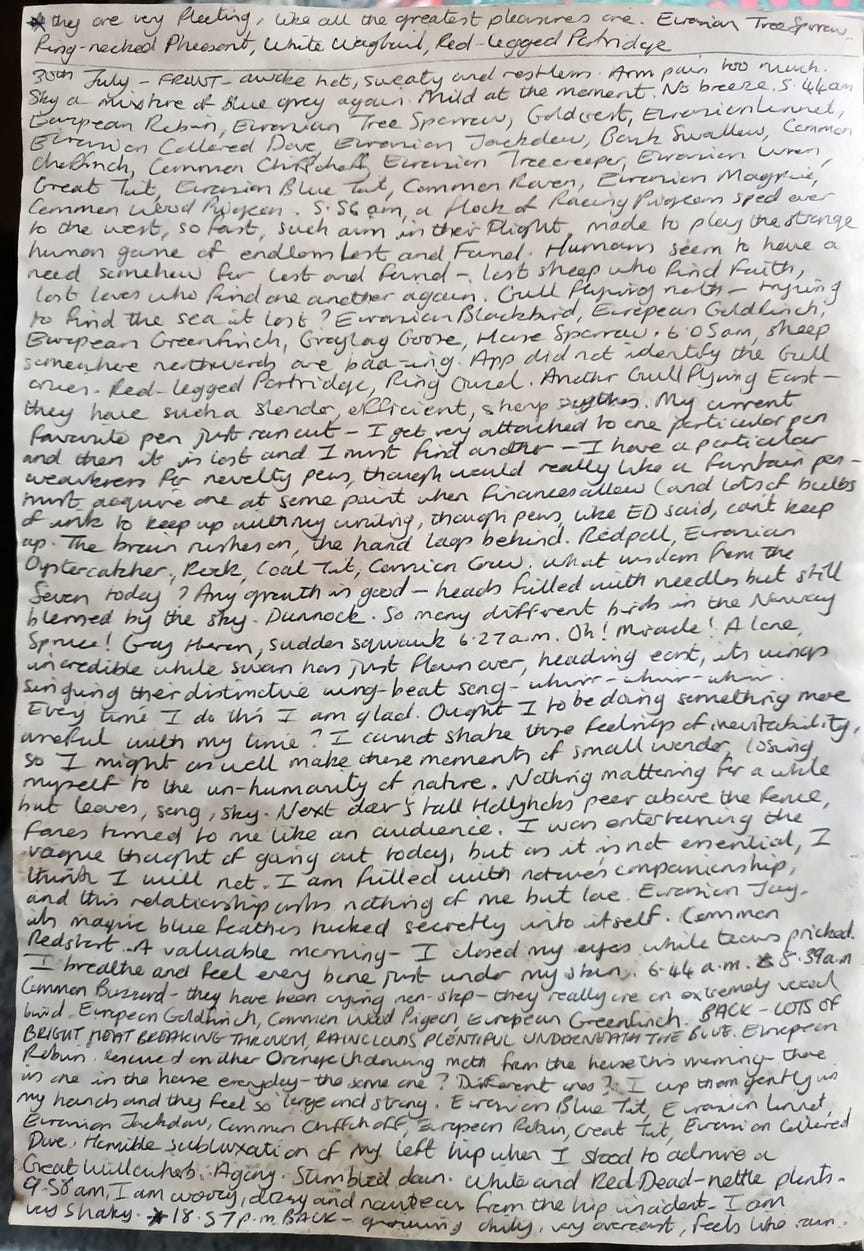 * they are very fleeting, like all the greatest pleasures are. Eurasian Tree Sparrow,
Ring-necked Pheasant, White Wagtail, Red-legged Partridge
30th July - FRONT - awoke hot, sweaty and restless. Arm pain too much.
Sky a mixture of blue grey again. Mild at the moment. No breeze. 5.44am
European Robin, Eurasian Tree Sparrow, Goldcrest, Eurasian Linnet,
Eurasian Collared Dove, Eurasian Jackdaw, Bank Swallow, Common
Chaffinch, Common Chiffchaff, Eurasian Treecreeper, Eurasian Wren,
Great Tit, Eurasian Blue Tit, Common Raven, Eurasian Magpie,
Common Wood Pigeon. 5.56am, a flock of Racing Pigeons sped over
to the west, so fast, such aim in their flight, made to play the strange
human game of endless Lost and Found. Humans seem to have a
need somehow for Lost and Found - lost sheep who find faith,
lost loves who find one another again. Gull flying north - trying
to find the sea it lost? Eurasian Blackbird, European Goldfinch,
European Greenfinch, Greylag Goose, House Sparrow. 6.05am, sheep
somewhere northwards are baa-ing. App did not identify the Gull
cries. Red-legged Partridge, Ring Ouzel. Another Gull flying East -
they have such a slender, efficient, sharp scythes. My current
favourite pen just ran out - I get very attached to one particular pen
and then it is lost and I must find another - I have a particular
weakness for novelty pens, though would really like a fountain pen -
must acquire one at some point when finances allow (and lots of bulbs
of ink to keep up with my writing, though pens, like ED said, can't keep
up. The brain rushes on, the hand lags behind. Redpoll, Eurasian
Oystercatcher, Rook, Coal Tit, Carrion Crow. What wisdom from the
Seven today? Any growth is good - heads filled with needles but still
blessed by the sky. Dunnock. So many different birds in the Norway
Spruce! Gray Heron, sudden squawk 6.27a.m. Oh! Miracle! A lone,
incredible white swan has just flown over, heading east, its wings
singing their distinctive wing-beat song - whirr-whirr-whirr.
Every time I do this I am glad. Ought I to be doing something more
useful with my time? I cannot shake these feelings of inevitability,
so I might as well make these moments of small wonder, losing
myself to the un-humanity of nature. Nothing mattering for a while
but leaves, song, sky. Next door's tall Hollyhocks peer above the fence,
faces turned to me like an audience. I was entertaining the
vague thought of going out today, but as it is not essential, I
think I will not. I am filled with nature's companionship,
and this relationship asks nothing of me but love. Eurasian Jay -
its magpie blue feathers tucked secretly into itself. Common
Redstart. A valuable morning - I closed my eyes while tears pricked.
I breathe and feel every bone just under my skin. 6.44 a.m. 8.39a.m
Common Buzzard - they have been crying non-stop - they really are an extremely vocal
bird. European Goldfinch, Common Wood Pigeon European Greenfinch. BACK - LOTS OF
BRIGHT HEAT BREAKING THROUGH, RAINCLOUDS PLENTIFUL UNDERNEATH THE BLUE. European
Robin. Rescued another Orange Underwing moth from the house this morning - there
is one in the house everyday - the same one? Different ones? I cup them gently in
my hands and they feel so large and strong. Eurasian Blue Tit, Eurasian Linnet,
Eurasian Jackdaw, Common Chiffchoff, European Robin, Great Tit, Eurasian Collared
Dove. Horrible subluxation of my left hip when I stood to admire a
Great Willowherb. Agony. Stumbled down. White and Red Dead-nettle plants.
9.50am, I am woozy, dozy and nauseous from the hip incident - I am
very shaky. * 18.57p.m. BACK - growing chilly, very overcast, feels like rain.